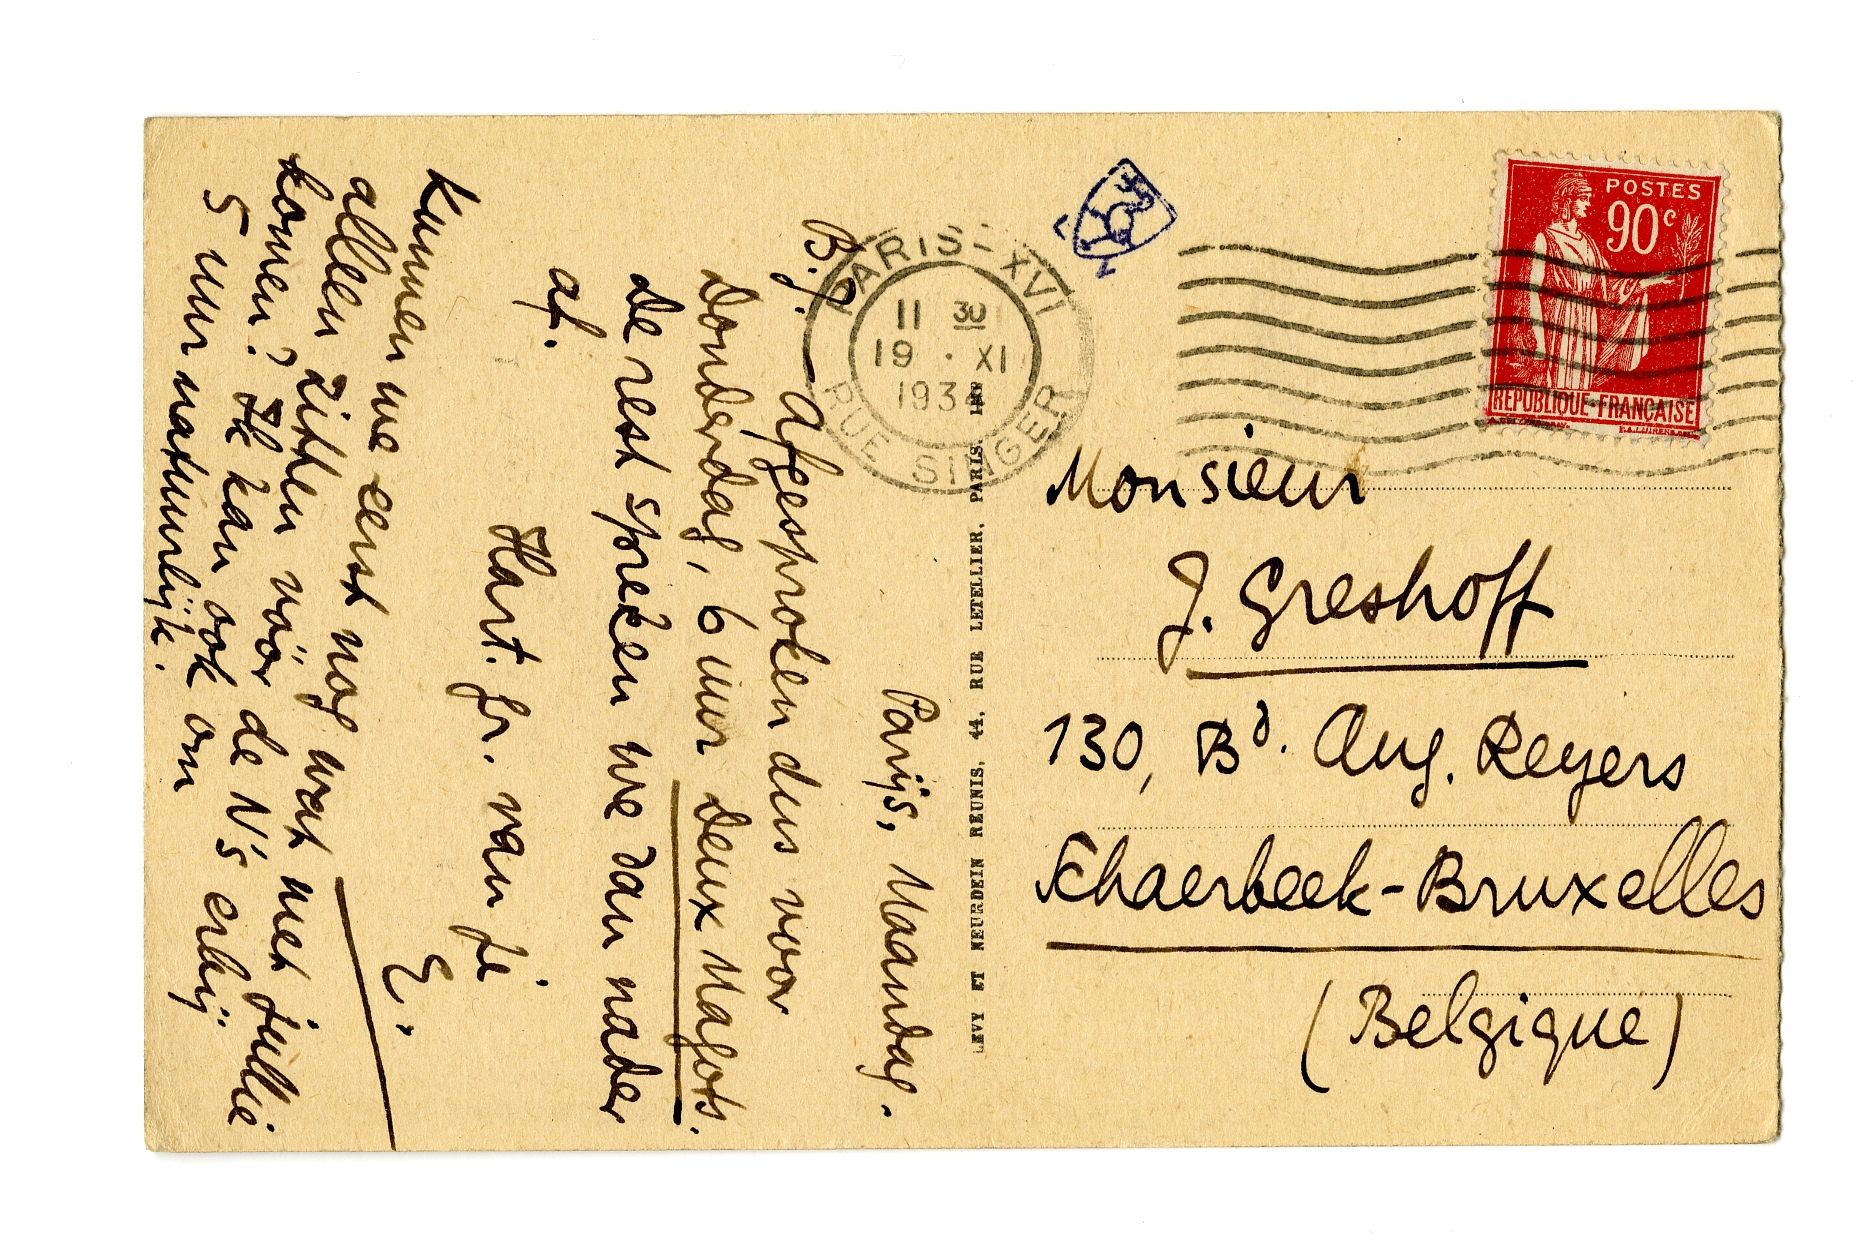 Parijs, Maandag.
B.J. Afgesproken dus voor
Donderdag, 6 uur Deux Magots.
De rest spreken we dan nader
af.
Hart. gr. van je
E.
Kunnen we eerst nog wat met jullie
alleen zitten vóór de N's erbij
komen? Ik kan ook om
5 uur natuurlijk.
LEVY ET NEURDEIN REUNIS, 44, RUE LETELLIER, PARIS. IMP
PARIS-XVI
11 30
19 · XI
RUE SINGER
POSTES
90c
REPUBLIQUE-FRANÇAISE
Monsieur
J. Greshoff
130, Bd. Aug. Reyers
Schaerbeek-Bruxelles
(Belgique)